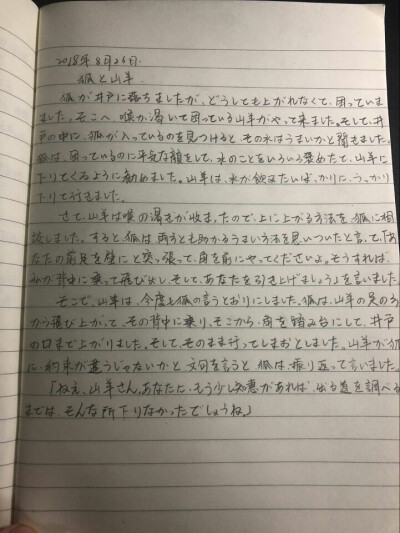 2018年8月26日.
狐と山羊.
狐が井戸に落ちましたが、どうしても上がれなくて、困っていま
ました。そこへ、喉が渇いて困っている山羊がやって来ました。そして、井
戸の中に、狐が入っているのを見つけると、その水はうまいかと聞きました。
狐は、困っているのに平気な顔をして、水のことをいろいろ褒めたて、山羊に
下りてくるように勧めました。山羊は、水が飲みたいばっかりに、うっかり
下りて行きました。
さて、山羊は喉の渇きが収まったので、上に上がる方法を、狐に相
談しました。すると、狐は、両方とも助かるうまい方法を思いついたと言って、「あ
なたの前足を壁にと突っ張って、角を前にやってくださいよ。そうすれば、
私が背中に乗って飛び出し、そして、あなたを引き上げましょう」を言いました。
そこで、山羊は、今度も狐の言うとおりにしました。狐は、山羊の足のお
から飛び上がって、その背中に乗り、そこから、角を踏み台にして、井戸
の口まで上がりました。そして、そのまま行ってしまおとしました。山羊が狐
に、約束が違うじゃないかと、文句を言うと、狐は、振り返って言いました。
「ねえ、山羊さん、あなたに、もう少し知恵があれば、出る道を調べる
までは、そんな所下りなかったでしょうね。」